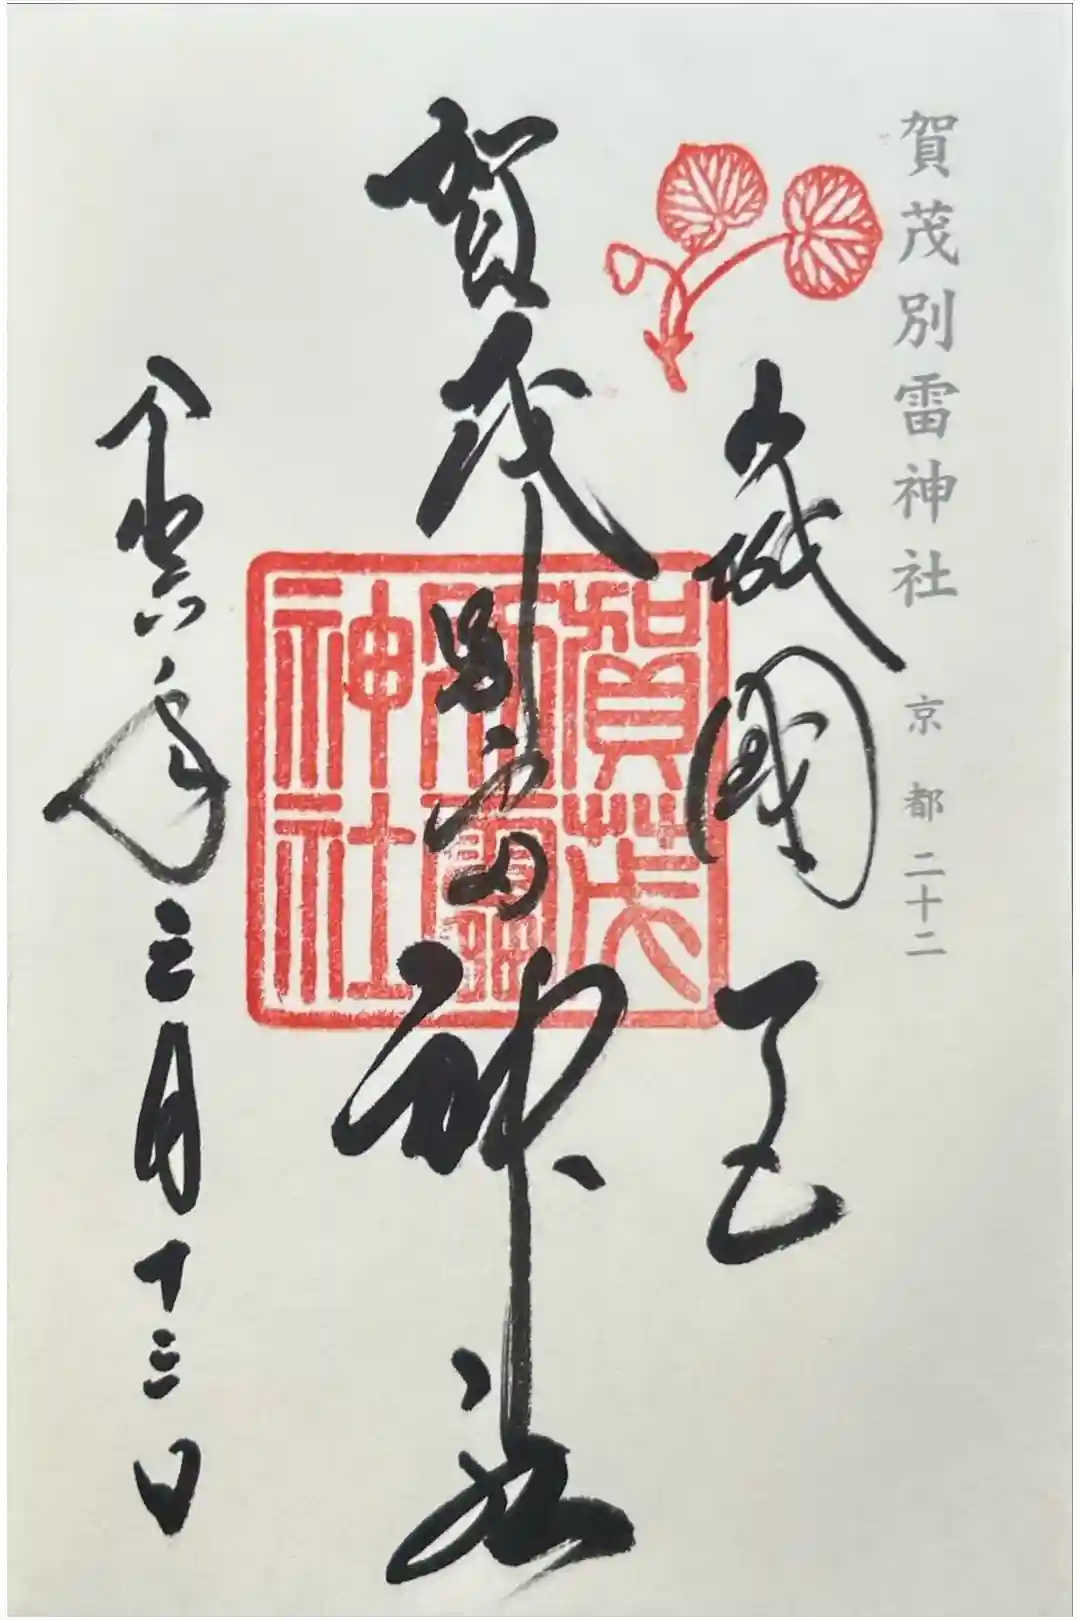 賀茂別雷神社 京都 二十二
山城國一宮
賀茂別雷神社
賀茂
別雷
神社
令和六年三月十三日